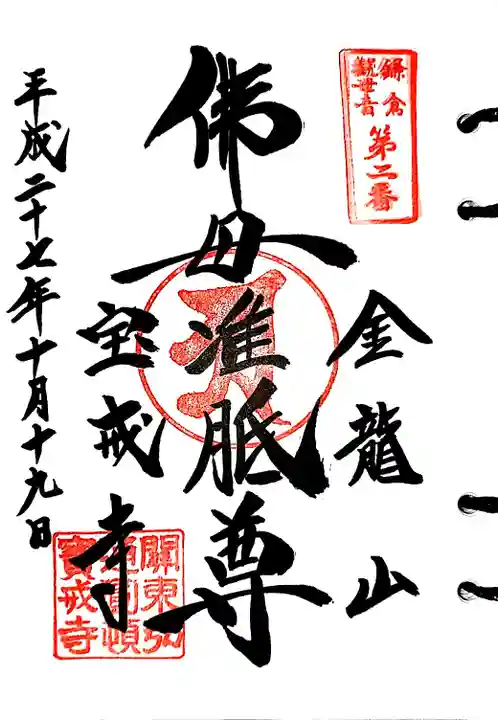 鎌倉
観世音
第二番
金龍山
佛母准胝尊
宝戒寺
平成二十七年十月十九日
關東弘
通圓頓
寶戒寺